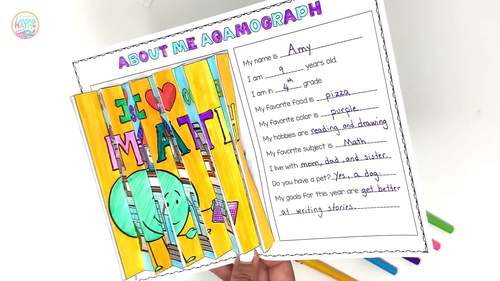 ABOUT ME AGAMOGRAPH
I ❤
MATH
My name is Amy
I am 9 years old.
I am in 4th grade
My favorite food is pizza
My favorite color is purple
My hobbies are reading and drawing
My favorite subject is Math
I live with mom, dad, and sister
Do you have a pet? Yes, a dog.
My goals for this year are get better
at writing stories.